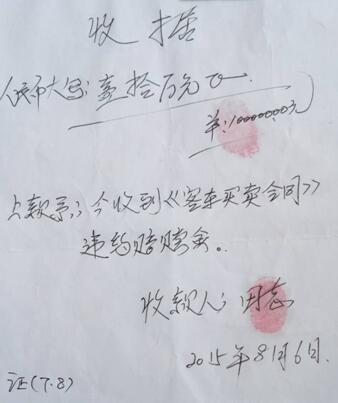 收据
人民币大写：壹拾万元正.
¥:100000.00元)
上款系;今收到《客车买卖合同》
违约赔赎金。
收款人:田志
2015年8月6日.
证(7.8)